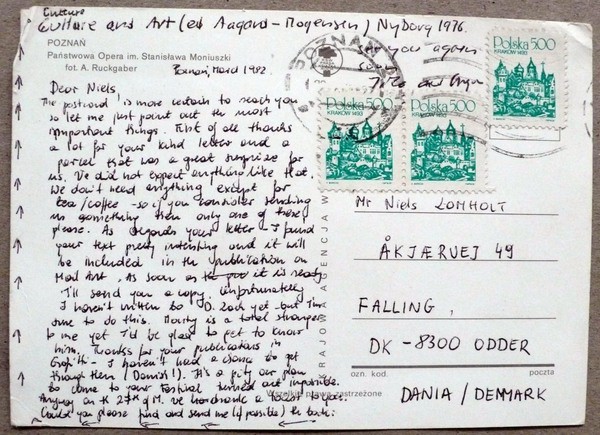 Culture
Culture and Art (ed Aagard-Mogensen) Nyborg 1976.
POZNAŃ
Państwowa Opera im. Stanisława Moniuszki
fot. A. Ruckgaber
Poznań, March 1982
you again
POZNAŃ
Polska 5.00
KRAKÓW 1493
Polska 5.00
KRAKÓW 1493
Polska 5.00
KRAKÓW 1493
Dear Niels,
The postcard is more certain to reach you
so let me just point out the most
important things. First of all thanks
a lot for your kind letter and a
parcel that was a great surprize for
us. We did not expect anything like that.
We don't need anything except for
tea/coffee - so if you consider sending
us something then only one of these
please. As regards your letter - I found
your text pretty interesting and it will
be included in the publication on
Mail Art. As soon as it is ready
I'll send you a copy. Unfortunately
I haven't written to D. Zack yet - but I'm
to do this. is a total stranger
to me yet I'd be glad to get to know
him. Thanks for your publications in
- I haven't had a chance to get
through them (Danish!). It's a pity our plan
to come to your Festival turned out impossible.
Anyway on the 27th of M. we
Could you please find and send me (if possible) the book:
KRAJOWA AGENCJA W
Mr Niels LOMHOLT
ÅKJÆRVEJ 49
FALLING,
DK - 8300 ODDER
ozn. kod. poczta
DANIA / DENMARK
Wszelkie prawa zastrzeżone